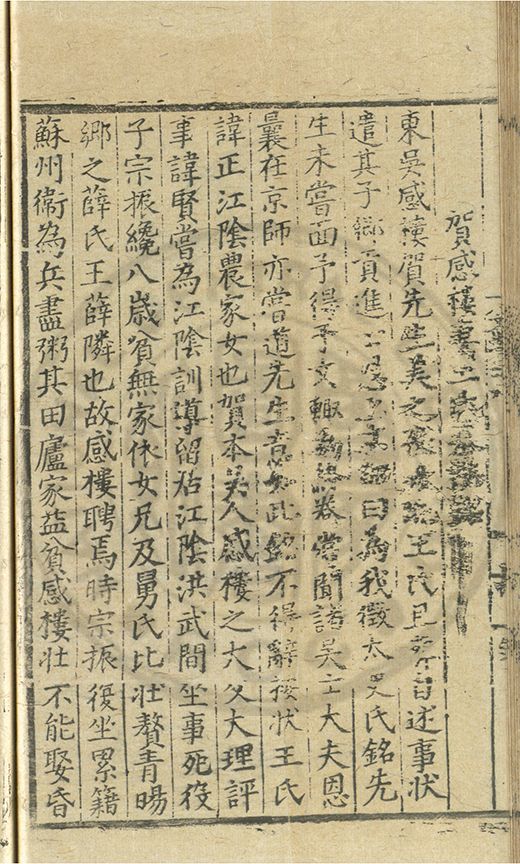 賀感樓妻王
東吳感樓賀先生美之喪其王氏且自述事狀
遣其子鄉貢進士曰為我徵太史氏銘先
生未嘗面予得予文輒卷嘗聞諸吳士大夫恩
曩在京師亦嘗道先生意如此不得辭按狀王氏
諱正江陰農家女也賀本吳人感樓之大父大理評
事諱賢嘗為江陰訓導留居江陰洪武間坐事死役
子宗振纔八歲貧無家依女兄及舅氏比壯贅青暘
鄉之薛氏王薛隣也故感樓聘焉時宗振復坐累籍
蘇州衛為兵盡粥其田廬家益貧感樓壯不能娶昏